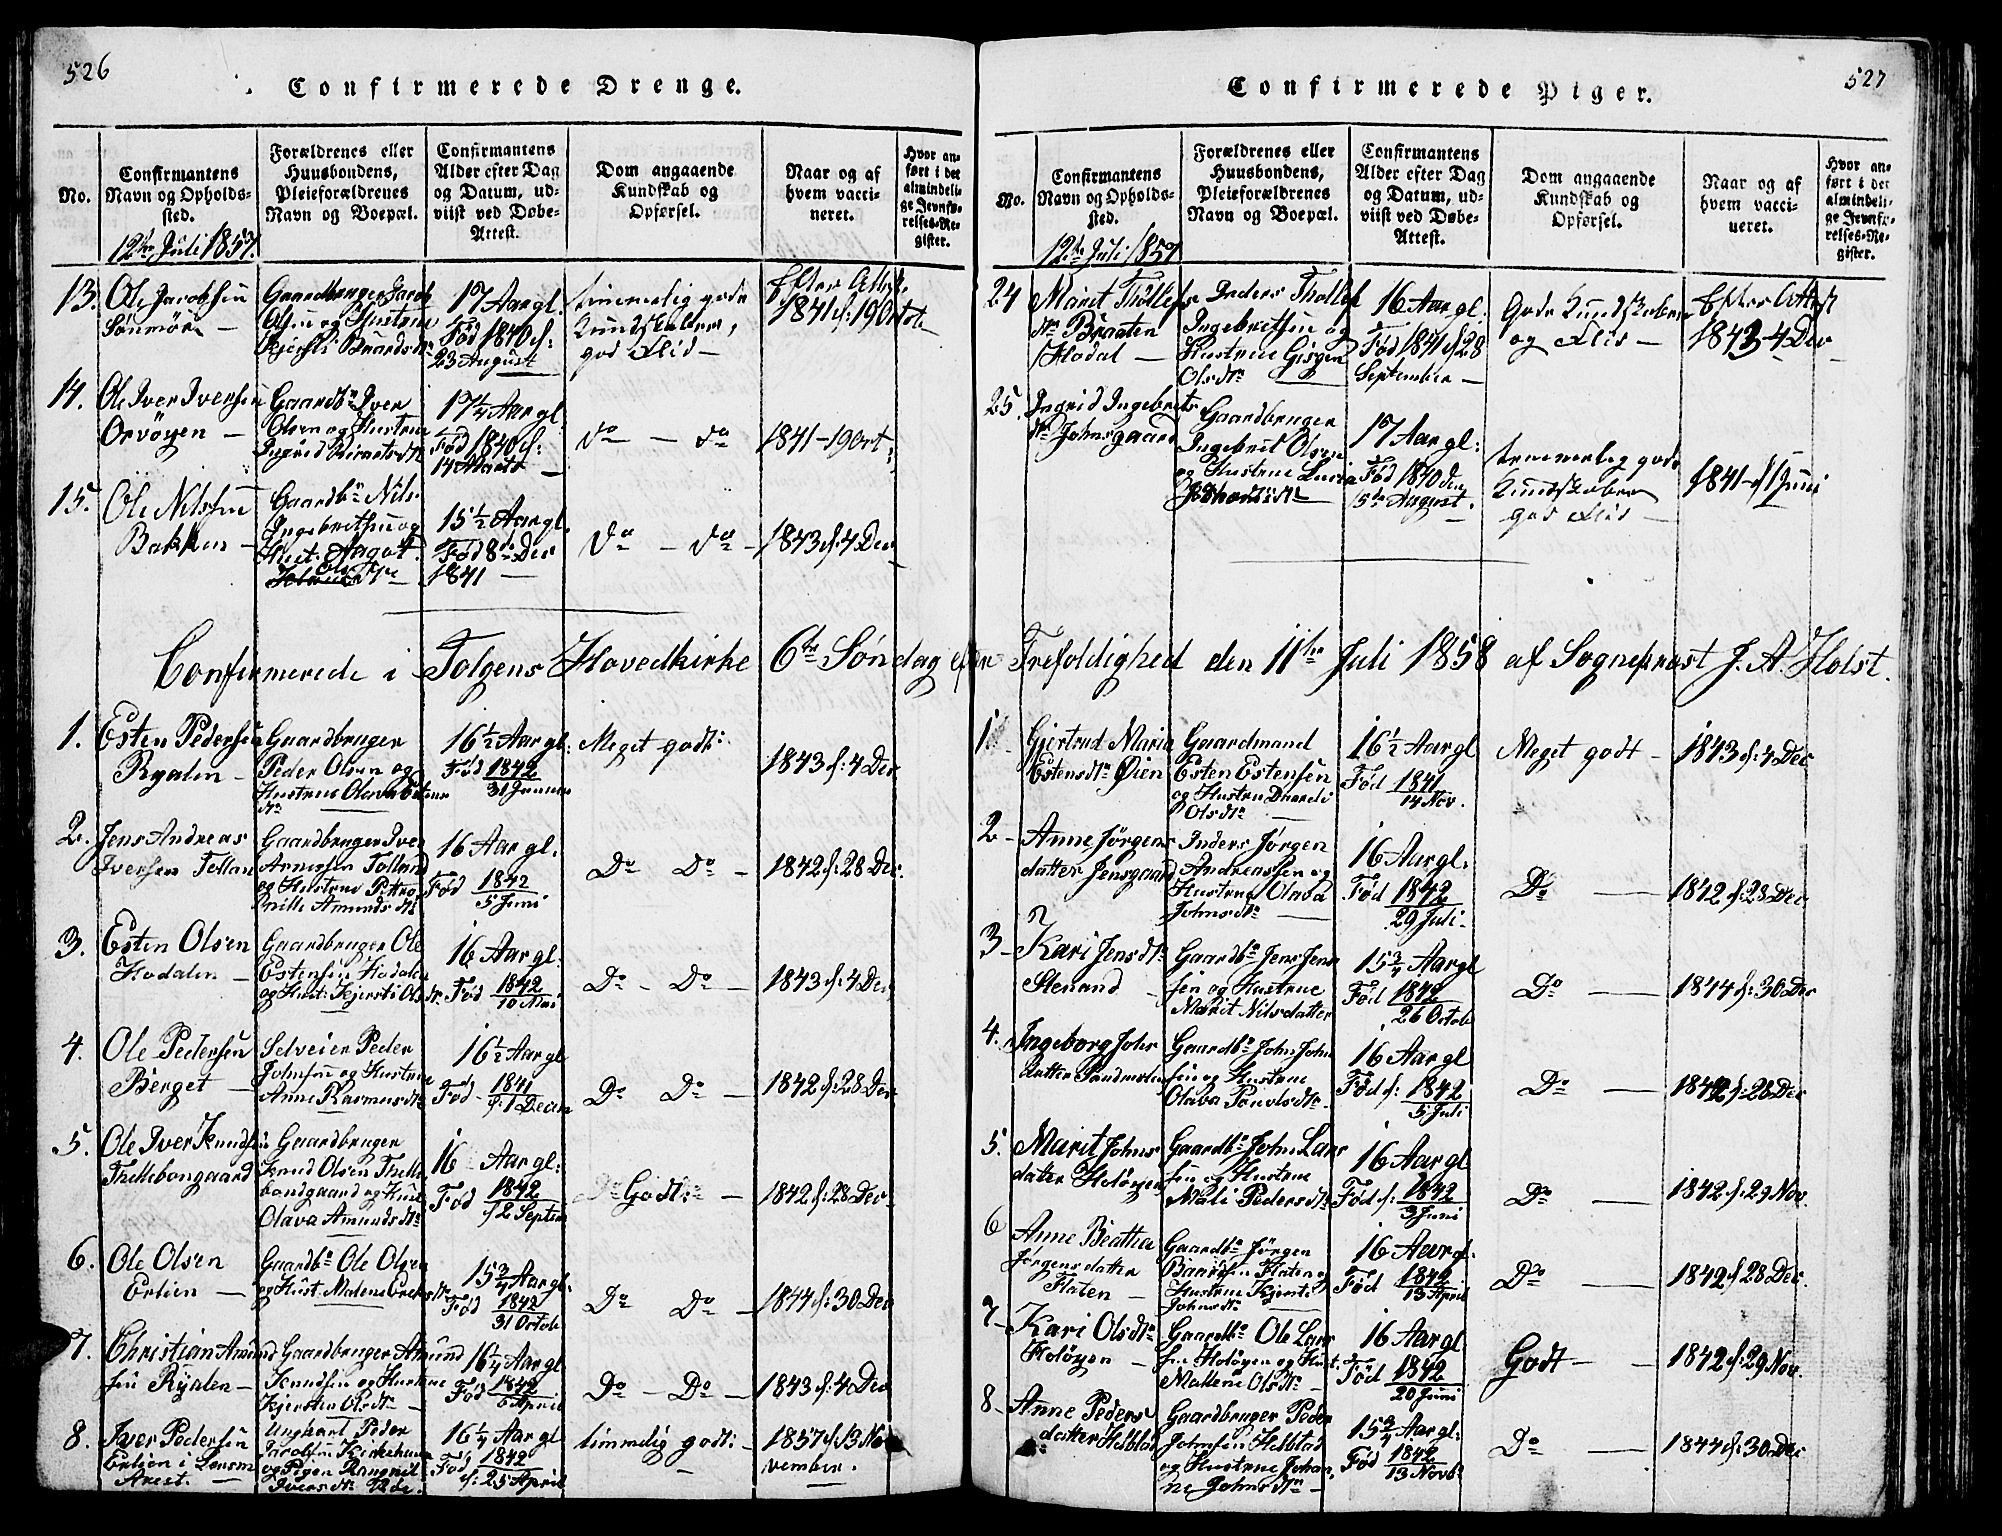 526
Confirmerede Drenge.
No.
Confirmantens
Navn og Opholds-
sted.
Forældrenes eller
Huusbondens,
Pleieforældrenes
Navn og Boepæl.
Confirmantens
Alder efter Dag
og Datum, ud-
viist ved Døbe-
Attest.
Dom angaaende
Kundskab og
Opførsel.
Naar og af
hvem vacci-
neret.
Hvor an-
ført i det
almindeli-
ge Jevnfø-
relses-Re-
gister.
12te Juli 1857.
13. Ole Jacobsen
Gaardbruger Jacob
Olsen og Hustrue
Kjersti Baardsdtr
17 Aar gl.
Fød 1840 d:
23 August
temmelig gode
Kundskaber,
god Flid –
Efter Attest
1841 d: 19 Octob
14. Ole Iver Iversen
Orvøyen –
Gaardbr Iver
Olsen og Hustrue
Ingrid
17¼ Aar gl.
Fød 1840 d:
14 Marts –
do – do
1841 – 19 Oct:
15. Ole Nilssen
Bakken –
Gaardbr Nils
Ingebretsen og
Hust: Aagot
Ols
15½ Aar gl.
Fød 8de Dec
1841 –
do – do –
1843 d: 4 Dec
Confirmerede i Tolgens Hovedkirke 6te Søndag efter Trefoldighed den 11te Juli 1858 af Sogneprest J. A. Holst.
1. Esten Pedersen
Ryalen –
Gaardbruger
Peder Olsen og
Hustrue Olava Estens
dtr
16½ Aar gl:
Fød 1842
31 Januar
Meget godt:
1843 d: 4 Dec
2. Jens Andreas
Iversen Tellan
Gaardbruger Iver
Arnessen Tolland
og Hustrue Petro
nille Amundsdtr
16 Aar gl.
Fød 1842
5 Juni
Do Do –
1842 d: 28 Dec.
3. Esten Olsen
Hodalen –
Gaardbruger Ole
Estensen Hodalen
og Hust: Kjersti Ols
dtr
16 Aar gl.
Fød 1842
10 Mai
Do – Do –
1843 d: 4 Dec
4. Ole Pedersen
Berget –
Selveier Peder
Johnsen og Hustrue
Anne Rasmusdtr
16½ Aar gl
Fød – 1841
d: 1 Decem
Do Do –
1842 d: 28 Dec
5. Ole Iver Knudsen
Thellebongaard
Gaardbruger
Knud Olsen Thelle
bondgaard og Hust
Olava Amundsdtr
16 Aar gl:
Fød 1842
d 2 Septem
Godt: –
1842 d: 28 Dec.
6. Ole Olsen
Erlien –
Gaardbr Ole Olsen
og Hust: Malene Ereksdtr
15¾ Aar gl.
Fød 1842
31 Octob
Do Do –
1844 d: 30 Dec
7. Christian Amund
sen Ryalen –
Gaardbruger Amund
Knudsen og Hustrue
Kjersten Olsdtr –
16¼ Aar gl
Fød 1842
6 April
Do – Do –
1843 d: 4 Dec
8. Iver Pedersen
Erlien i Lensm
Arest. –
Ungkarl Peder
Jacobsen
og Pigen Rangnil
Iversdtr
16¼ Aar gl
Fød 1842
d: 25 April
timmelig godt: –
1857 d: 13 No
vember.
527
Confirmerede Piger.
No.
Confirmantens
Navn og Opholds-
sted.
Forældrenes eller
Huusbondens,
Pleieforældrenes
Navn og Boepæl.
Confirmantens
Alder efter Dag
og Datum, ud-
viist ved Døbe-
Attest.
Dom angaaende
Kundskab og
Opførsel.
Naar og af
hvem vacci-
neret.
Hvor an-
ført i det
almindeli-
ge Jevnfø-
relses-Re-
gister.
12te Juli 1857
24 Maret Thollefs
dtr Braaten
Hodal –
Inders Thollef
Ingebretsen og
Hustrue
Olsdtr
16 Aar gl.
Fød 1841 d 28
September –
Gode Kundskaber
og Flid –
Efter Attest
1843 – 4 Dec
25. Ingrid Ingebrets
dtr Johnsgaard
Gaardbruger
Ingebret Olsen
og Hustrue Lucia
17 Aar gl:
Fød 1840 den
15de August.
temmelig gode
Kundskaber
god Flid –
1841 – d 1 Juni
1 – Gjertrud Maria
Estensdtr Øien
Gaardmand
Esten Estensen
og Hustrue
Olsdtr
16½ Aar gl
Fød 1841
14 Nov.
Meget godt –
1843 d: 4 Dec
2 – Anne Jørgens
datter Jensgaard
Inders Jørgen
Andreassen og
Hustrue Olava
Johnsdtr
16 Aar gl.
Fød 1842
29 Juli.
Do –
1842 d: 28 Dec.
3 – Kari Jensdtr
Stenand
Gaardbr Jens Jens
sen og Hustrue
Marit Nilsdatter
15¾ Aar gl
Fød 1842
26 Octob
Do –
1844 d: 30 Dec
4. Ingeborg Johns
datter
Gaardbr John John
sen og Hustrue
Olava Povelsdtr
16 Aar gl
Fød d: 1842
5 Juli
Do –
1842 d: 28 Dec
5. Marit Johns
datter Holøyen
Gaardbr John Lars
sen og Hustrue
Mali Pedersdtr
16 Aar gl
Fød d: 1842
3 Juni
Do –
1842 d: 29 Nov.
6 Anne Beathea
Jørgensdatter
Flaten –
Gaardbr Jørgen
Baardsen Flaten og
Hustrue Kjersti
Johnsdtr
16 Aar gl.
Fød 1842
13 April
Do –
1842 d 28 Dec.
7 – Kari Olsdtr
Holøyen –
Gaardbr Ole Lars
sen Holøyen og Hust:
Malene Olsdtr –
16 Aar gl
Fød 1842
20 Juni
Godt –
1842 d: 29 Nov.
8 – Anne Peders
datter Helstad
Gaardbruger Peder
Johnsen Helstad
og Hustrue Johan
ne Johnsdtr –
15¾ Aar gl:
Fød 1842
13 Novbr
Do –
1844 d: 30 Dec